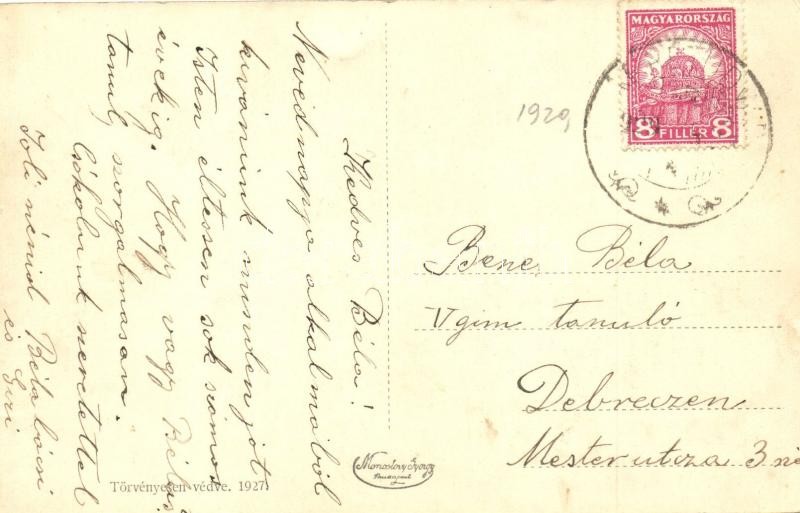 Kedves Béla!
Nevednapja alkalmából
kivánunk minden jót
Isten éltessen sok számos
évekig. Hogy vagy Bélus
tanulj szorgalmasan.
Csókolunk szeretettel
Joli nénid Béla bácsi
és Zizi
MAGYARORSZÁG
8 FILLÉR 8
1929
Bene Béla
V gim tanuló
Debreczen
Mester utcza 3
Monostory György
Budapest
Törvényesen védve. 1927.